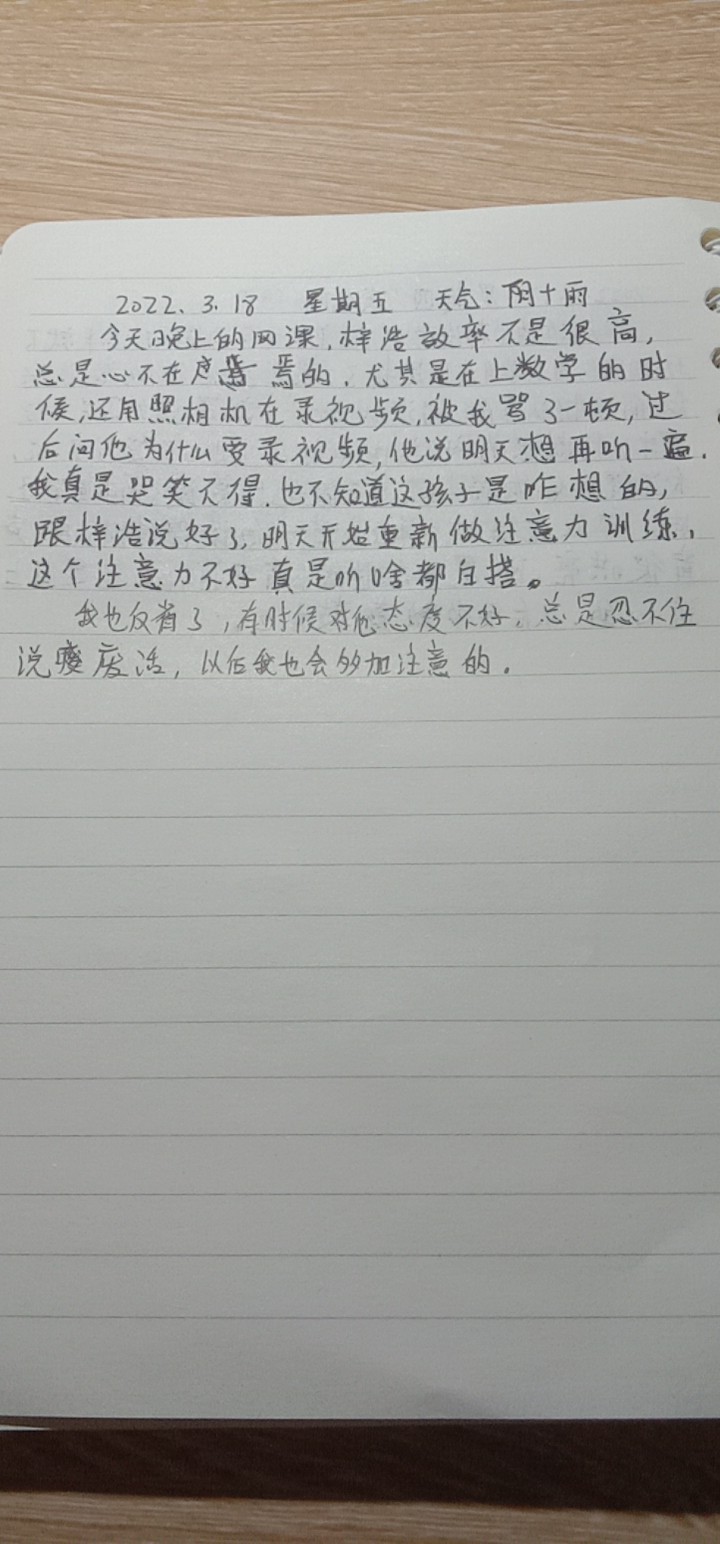 2022.3.18 星期五 天气:阴十雨
今天晚上的网课,梓浩效率不是很高,
总是心不在焉的,尤其是在上数学的时
候,还用照相机在录视频,被我骂了一顿,过
后问他为什么要录视频,他说明天想再听一遍.
我真是哭笑不得.也不知道这孩子是咋想的,
跟梓浩说好了,明天开始重新做注意力训练,
这个注意力不好真是听啥都白搭。
我也反省了,有时候对他态度不好,总是忍不住
说废话,以后我也会多加注意的.